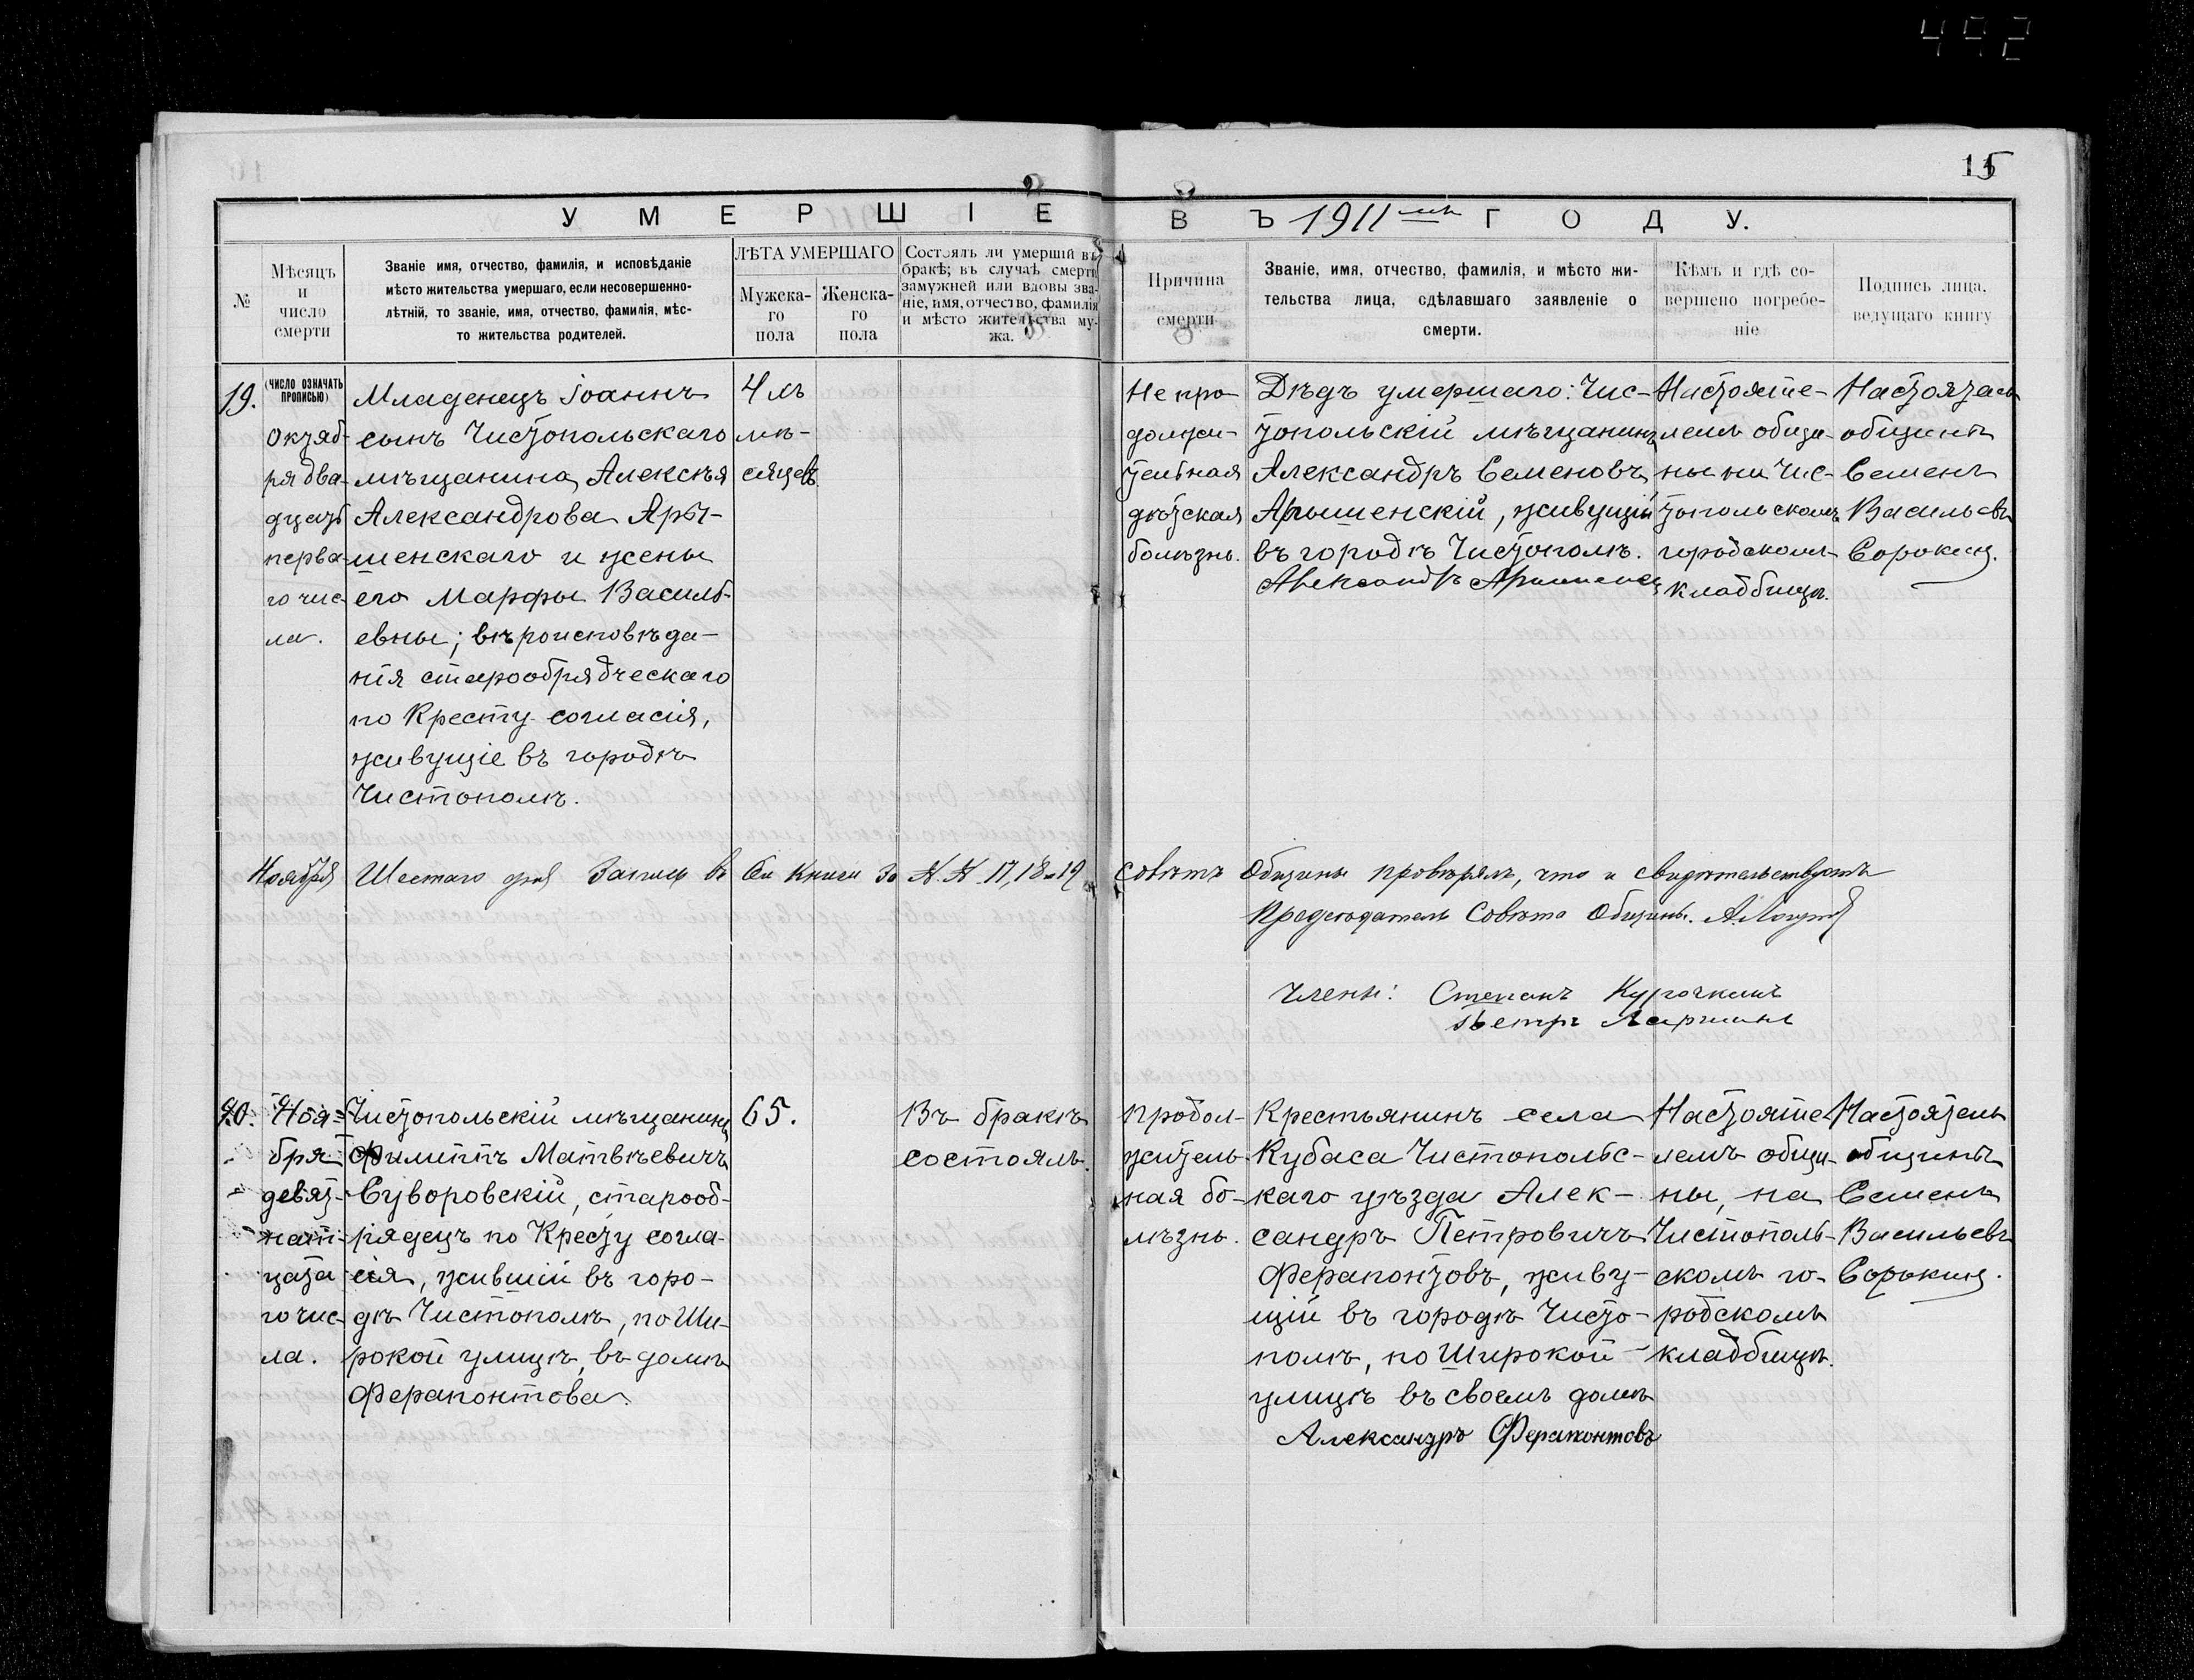 492
15
УМЕРШІЕ
ВЪ 1911мъ ГОДУ.
№
Мѣсяцъ
и
число
смерти
Званіе имя, отчество, фамилія, и исповѣданіе
мѣсто жительства умершаго, если несовершенно-
лѣтній, то званіе, имя, отчество, фамилія, мѣс-
то жительства родителей.
ЛѢТА УМЕРШАГО
Мужска-
го
пола
Женска-
го
пола
Состоялъ ли умершій въ
бракѣ; въ случаѣ смерти
замужней или вдовы зва-
ніе, имя, отчество, фамилія
и мѣсто жительства му-
жа.
Причина
смерти
Званіе, имя, отчество, фамилія, и мѣсто жи-
тельства лица, сдѣлавшаго заявленіе о
смерти.
Кѣмъ и гдѣ со-
вершено погребе-
ніе
Подпись лица,
ведущаго книгу
19.
(ЧИСЛО ОЗНАЧАТЬ
ПРОПИСЬЮ)
Октяб-
ря два-
дцать
перва-
го чис-
ла.
Младенецъ Іоаннъ
сынъ Чистопольскаго
мѣщанина Алексѣя
Александрова Ары-
шенскаго и жены
его Марфы Василь-
евны; вѣроисповѣда-
нія старообрядческаго
по Кресту согласія,
живущіе въ городѣ
Чистополѣ.
4 мъ
мѣ-
сяцевъ.
Не про-
должи-
тельная
дѣтская
болѣзнь.
Дѣдъ умершаго: Чис-
топольскій мѣщанинъ
Александръ Семеновъ
Арышенскій, живущій
въ городѣ Чистополѣ.
Александръ
Настояте-
лемъ общи-
ны на Чис-
топольскомъ
городскомъ
кладбищѣ.
Настоятель
общины
Семенъ
Васильевъ
Сорокинъ.
Ноября Шестаго дня Запись въ сей Книги за №№ 17, 18 и 19 Совѣтъ Общины провѣрялъ, что и свидѣтельствуетъ
Предсѣдатель Совѣта Общины.
Члены: Степанъ Курочкинъ
Петръ Ларинъ
20.
Ноя-
бря
девят-
нат-
цата
го чис-
ла.
Чистопольскій мѣщанинъ
Филиппъ Матвѣевичъ
Суворовскій, старооб-
рядецъ по Кресту согла-
сія, жившій въ горо-
дѣ Чистополѣ, по Ши-
рокой улицѣ, въ домѣ
Ферапонтова.
65.
Въ бракѣ
состоялъ.
Продол-
житель-
ная бо-
лѣзнь.
Крестьянинъ села
Кубаса Чистопольс-
каго уѣзда Алек-
сандръ Петровичъ
Ферапонтовъ, живу-
щій въ городѣ Чисто-
полѣ, по Широкой
улицѣ въ своемъ домѣ
Александръ Ферапонтовъ
Настояте-
лемъ общи-
ны, на
Чистополь-
скомъ го-
родскомъ
кладбищѣ.
Настоятель
общины
Семенъ
Васильевъ
Сорокинъ.